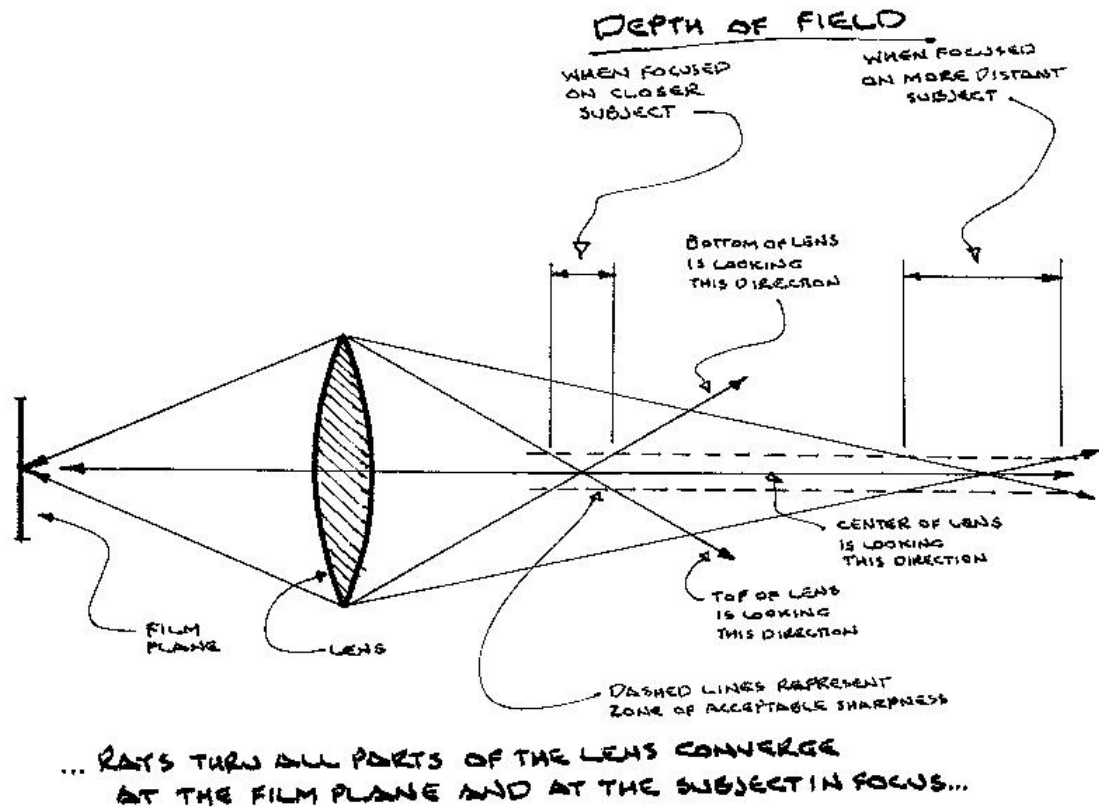 DEPTH OF FIELD
WHEN FOCUSED
ON CLOSER
SUBJECT
WHEN FOCUSED
ON MORE DISTANT
SUBJECT
BOTTOM OF LENS
IS LOOKING
THIS DIRECTION
CENTER OF LENS
IS LOOKING
THIS DIRECTION
TOP OF LENS
IS LOOKING
THIS DIRECTION
FILM
PLANE
LENS
DASHED LINES REPRESENT
ZONE OF ACCEPTABLE SHARPNESS
... RAYS THRU ALL PARTS OF THE LENS CONVERGE
AT THE FILM PLANE AND AT THE SUBJECT IN FOCUS...